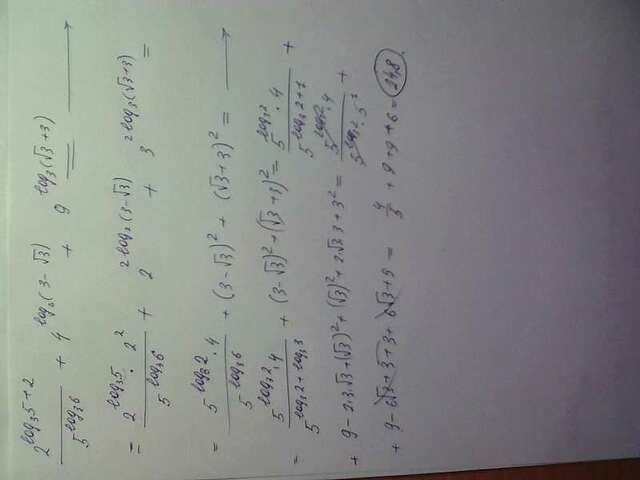 2^(log₃5+2) / 5^(log₃6) + 4^(log₂(3-√3)) + 9^(log₃(√3+3)) →
= 2^(log₃5) · 2² / 5^(log₃6) + 2^(2log₂(3-√3)) + 3^(2log₃(√3+3)) =
= 5^(log₃2) · 4 / 5^(log₃6) + (3-√3)² + (√3+3)² = →
= 5^(log₃2) · 4 / 5^(log₃2+log₃3) + (3-√3)² + (√3+3)² = 5^(log₃2) · 4 / 5^(log₃2+1) +
+ 9-2·3·√3+(√3)²+(√3)²+2·√3·3+3² = 5^(log₃2) · 4 / 5^(log₃2) · 5¹ +
+ 9-6√3+3+3+6√3+9 = 4/5 + 9+9+6 = 24,8.